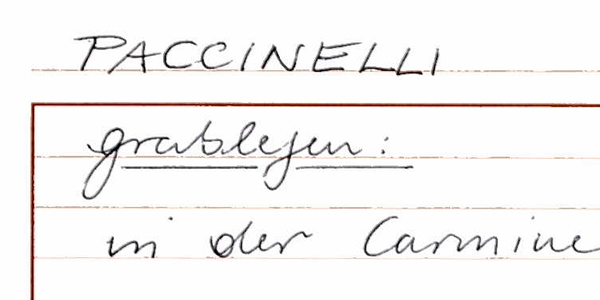 PACCINELLI
grablegen:
in der Carmine